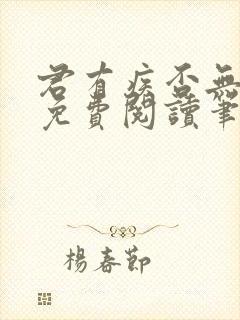 君有疾否無
免費閱讀筆
楊春節